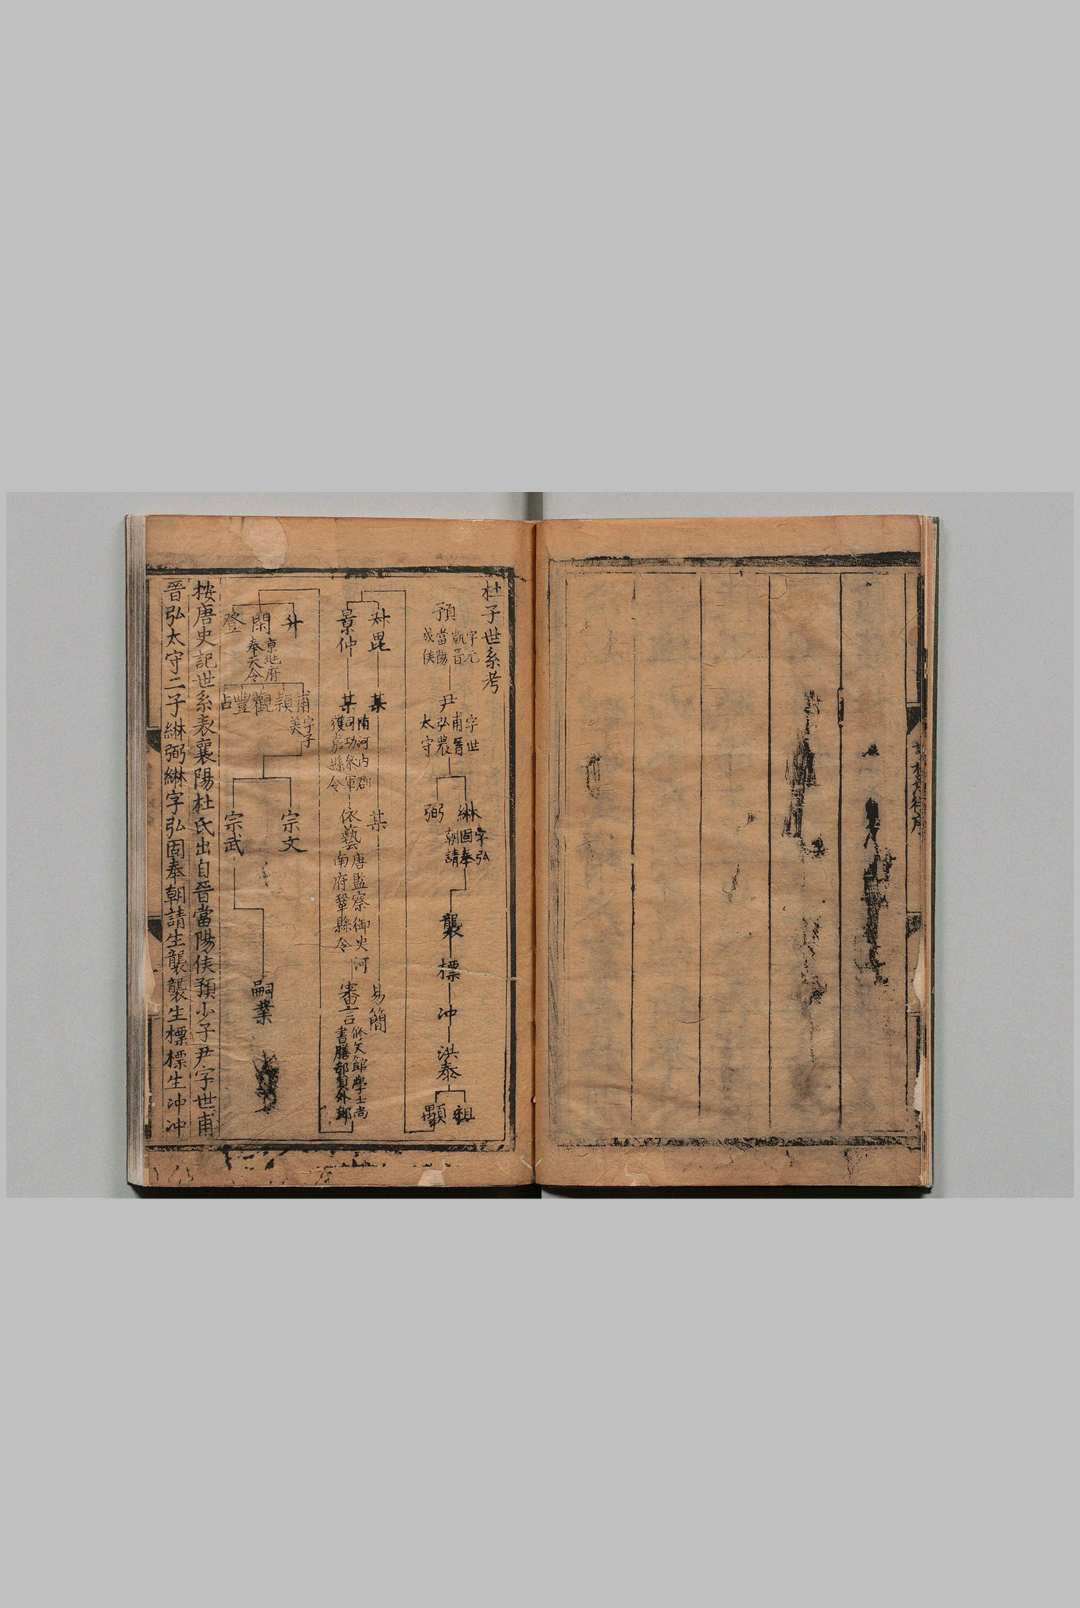 杜子世系考
預
字元
凱晉
當陽
成侯
尹
字世
甫晉
弘農
太守
綝
字弘
固奉
朝請
弼
襲
標
冲
洪泰
祖
顗
毘
某
隋河内郡
司功參軍
獲嘉縣令
某
易簡
景仲
某
依藝
唐監察御史河
南府鞏縣令
審言
修文館學士尚
書膳部員外郎
升
閑
京兆府
奉天令
登
甫
字子
美
穎
觀
豐
占
宗文
宗武
嗣業
按唐史記世系表襄陽杜氏出自晉當陽侯預少子尹字世甫
晉弘太守二子綝弼綝字弘固奉朝請生襲襲生標標生冲冲